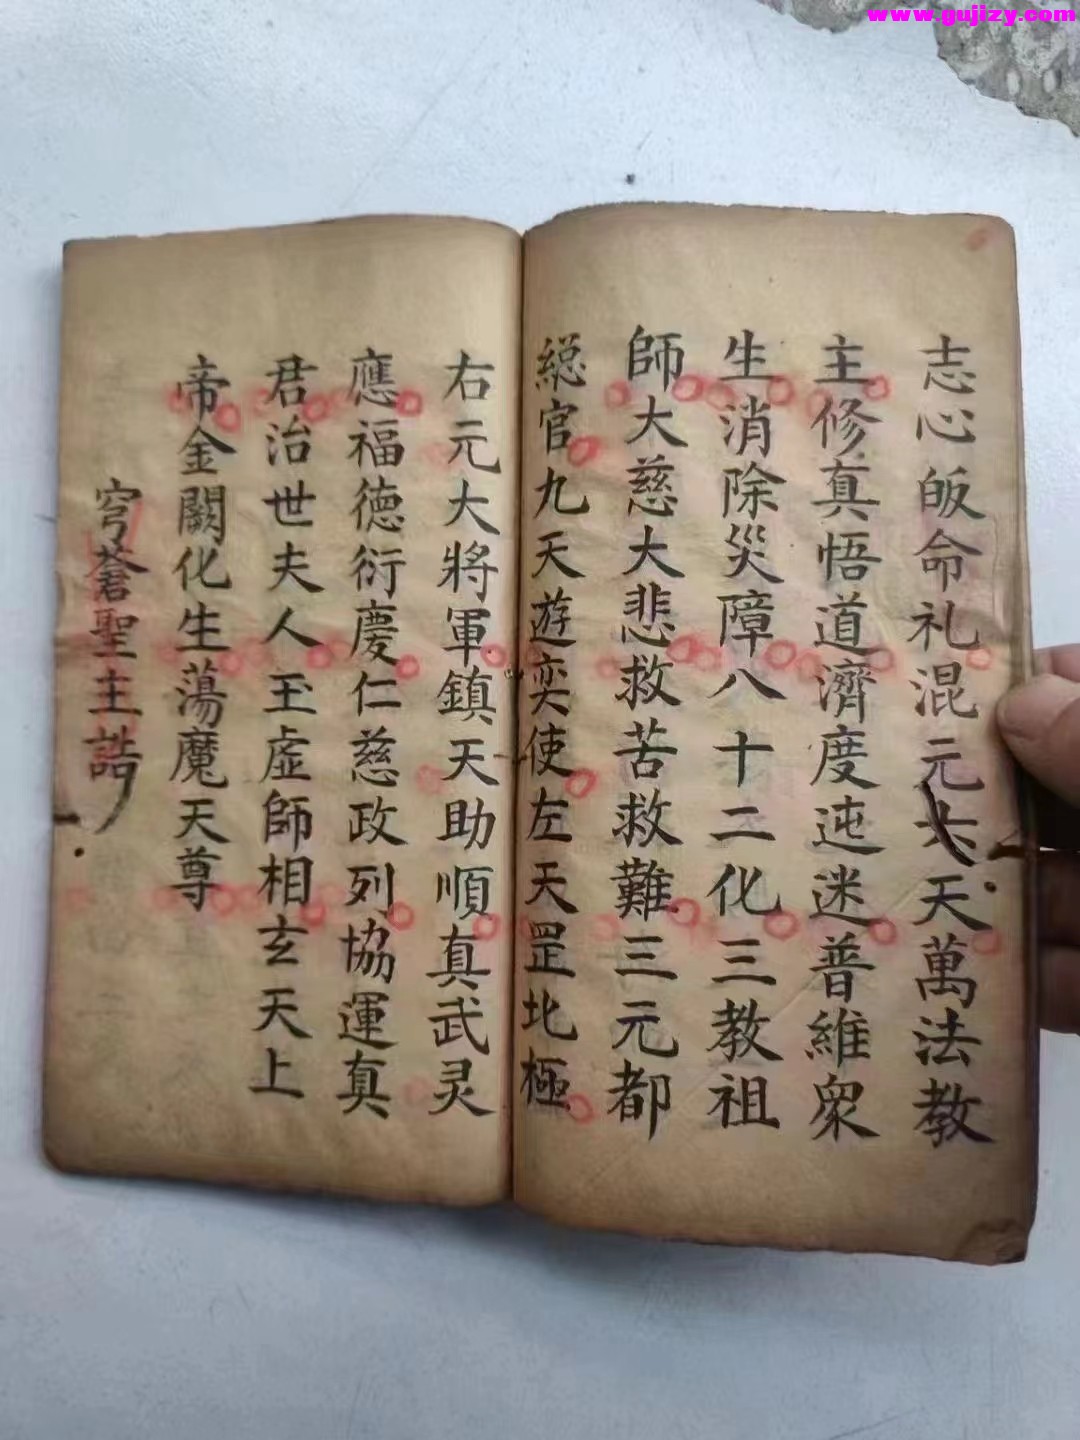 www.gujizy.com
志心皈命礼混元六天萬法教
主修真悟道濟度迍迷普維眾
生消除災障八十二化三教祖
師大慈大悲救苦救難三元都
総官九天遊奕使左天罡北極
右元大將軍鎮天助順真武灵
應福德衍慶仁慈政列協運真
君治世夫人玉虛師相玄天上
帝金闕化生蕩魔天尊
穹蒼聖主誥